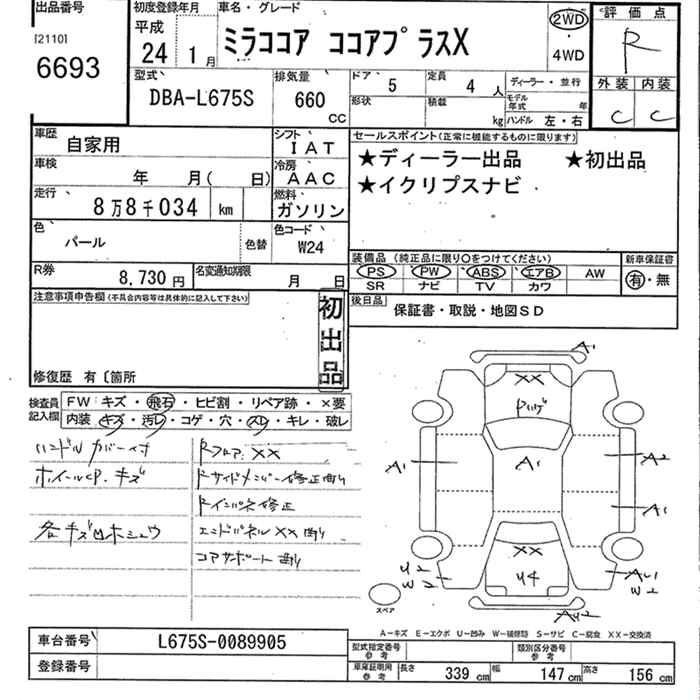 出品番号
[2110]
6693
初度登録年月
平成
24 1月
車名・グレード
ミラココア ココアプラスX
2WD
4WD
評価点
R
外装 内装
C C
型式
DBA-L675S
排気量
660 CC
ドア 5
定員 4人
形状
積載 kg
ディーラー・並行
モデル年式 年
ハンドル 左・右
車歴 自家用
シフト IAT
車検 年 月( 日)
冷房 AAC
走行 8万8千034 km
燃料 ガソリン
色 パール
色替
色コード W24
R券 8,730円
名変通知期限 月 日
セールスポイント(正常に機能するものに限ります)
★ディーラー出品 ★初出品
★イクリプスナビ
装備品(純正品に限り○をつけてください)
PS PW ABS エアB AW
SR ナビ TV カワ
新車保証書
有・無
後日品 保証書・取説・地図SD
注意事項申告欄(不具合内容等は具体的に記入して下さい)
初出品
修復歴 有〔箇所
検査員記入欄
FW キズ・飛石・ヒビ割・リペア跡・×要
内装 キズ・汚レ・コゲ・穴・スレ・キレ・破レ
ハンドルカバー付
ホイールCP.キズ
各キズ凹ホシュウ
Rフロア XX
Rサイドメンバー修正曲り
Rインパネ修正
エンドパネルXX曲り
コアサポート曲り
A1
XX
A1
A1
A2
A1
XX
U4
U2
W2
W2
スペア
A-キズ E-エクボ U-凹み W-補修跡 S-サビ C-腐食 XX-交換済
車台番号 L675S-0089905
登録番号
型式指定番号 参考
類別区分番号 参考
車庫証明用 参考
長さ 339cm 幅 147cm 高さ 156cm